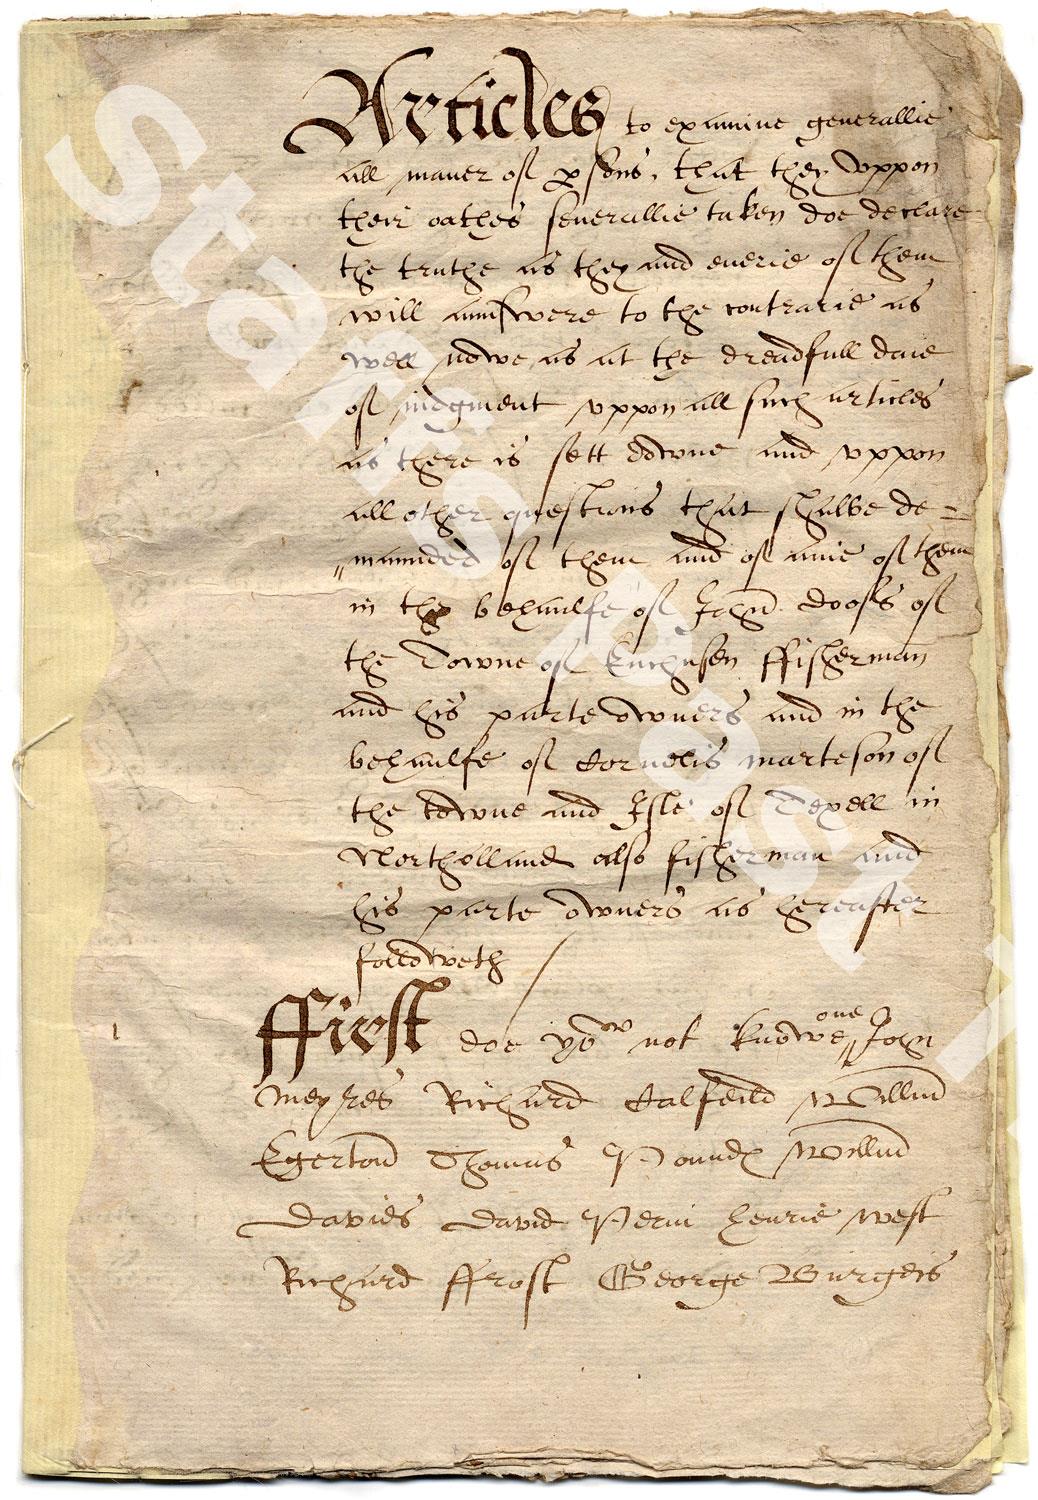 Articles to examine generallie
all maner of psons, that they vppon
their oathes seuerallie taken doe declare
the truthe as they and euerie of them
will aunswere to the contrarie as
well nowe as at the dreadfull daie
of iudgment vppon all such articles
as there is sett downe and vppon
all other questions that shalbe de=
maunded of them and of anie of them
in the behaulfe of John doofs of
the Towne of Enchusen ffisherman
and his parte owners and in the
behaulfe of Cornelis marteson of
the towne and Isle of Texell in
Northolland also fisherman and
his parte owners as hereafter
followeth
1 ffirst doe yor not knowe one John
meyres Richard Calfeild Willm
Egerton Thomas Pound Willm
Davids david Perin henrie west
Richard ffrost George Burgeis
Star's Past